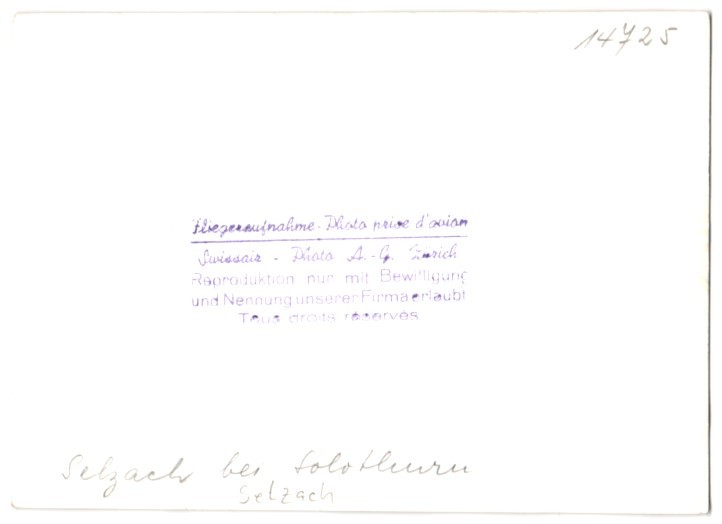 14725
Fliegeraufnahme - Photo prise d'avion
Swissair - Photo A.-G. Zürich
Reproduktion nur mit Bewilligung
und Nennung unserer Firma erlaubt
Tous droits réservés
Selzach bei Solothurn
Selzach